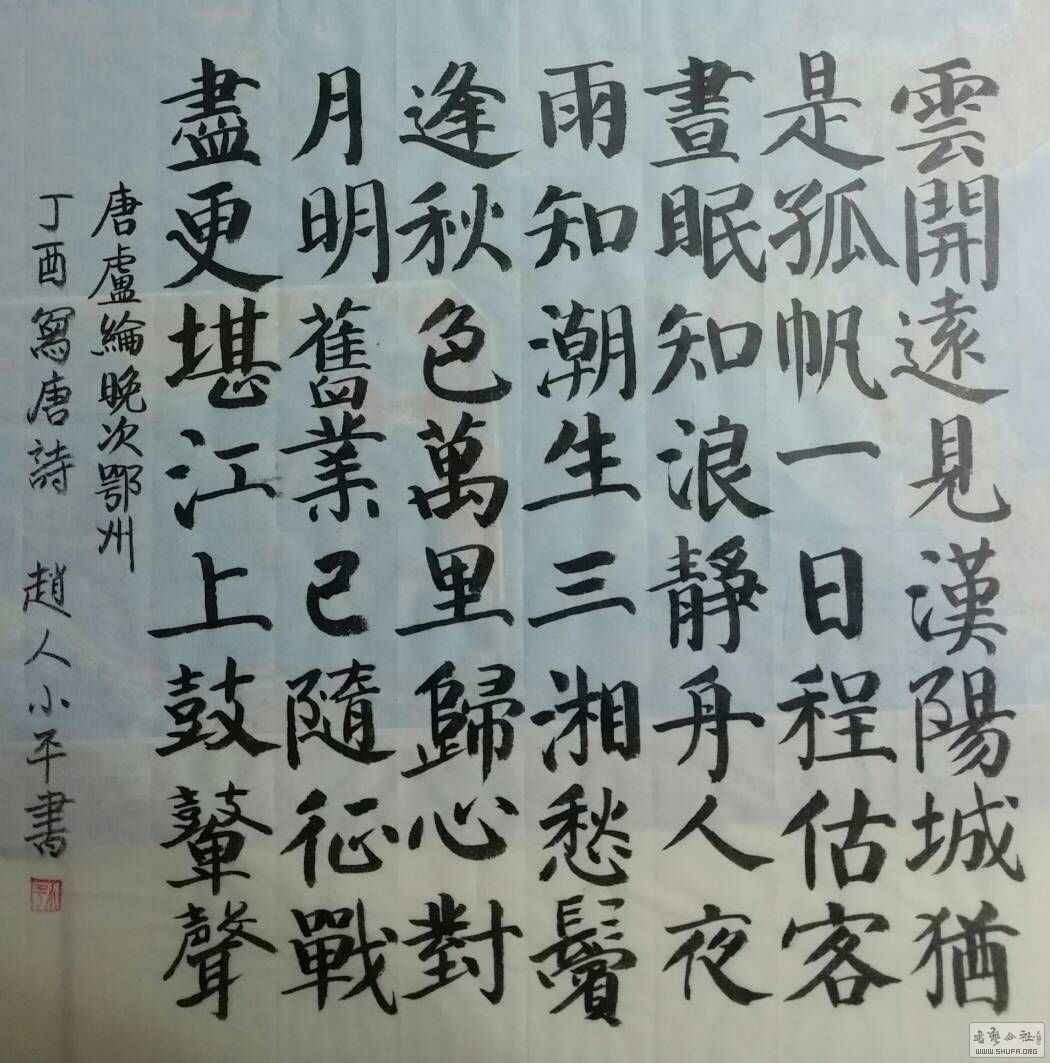 雲開遠見漢陽城猶
是孤帆一日程估客
晝眠知浪靜舟人夜
雨知潮生三湘愁鬢
逢秋色萬里歸心對
月明舊業已隨征戰
盡更堪江上鼓鼙聲
唐盧綸晚次鄂州
丁酉寫唐詩 趙人小平書
WWW.SHUFA.ORG